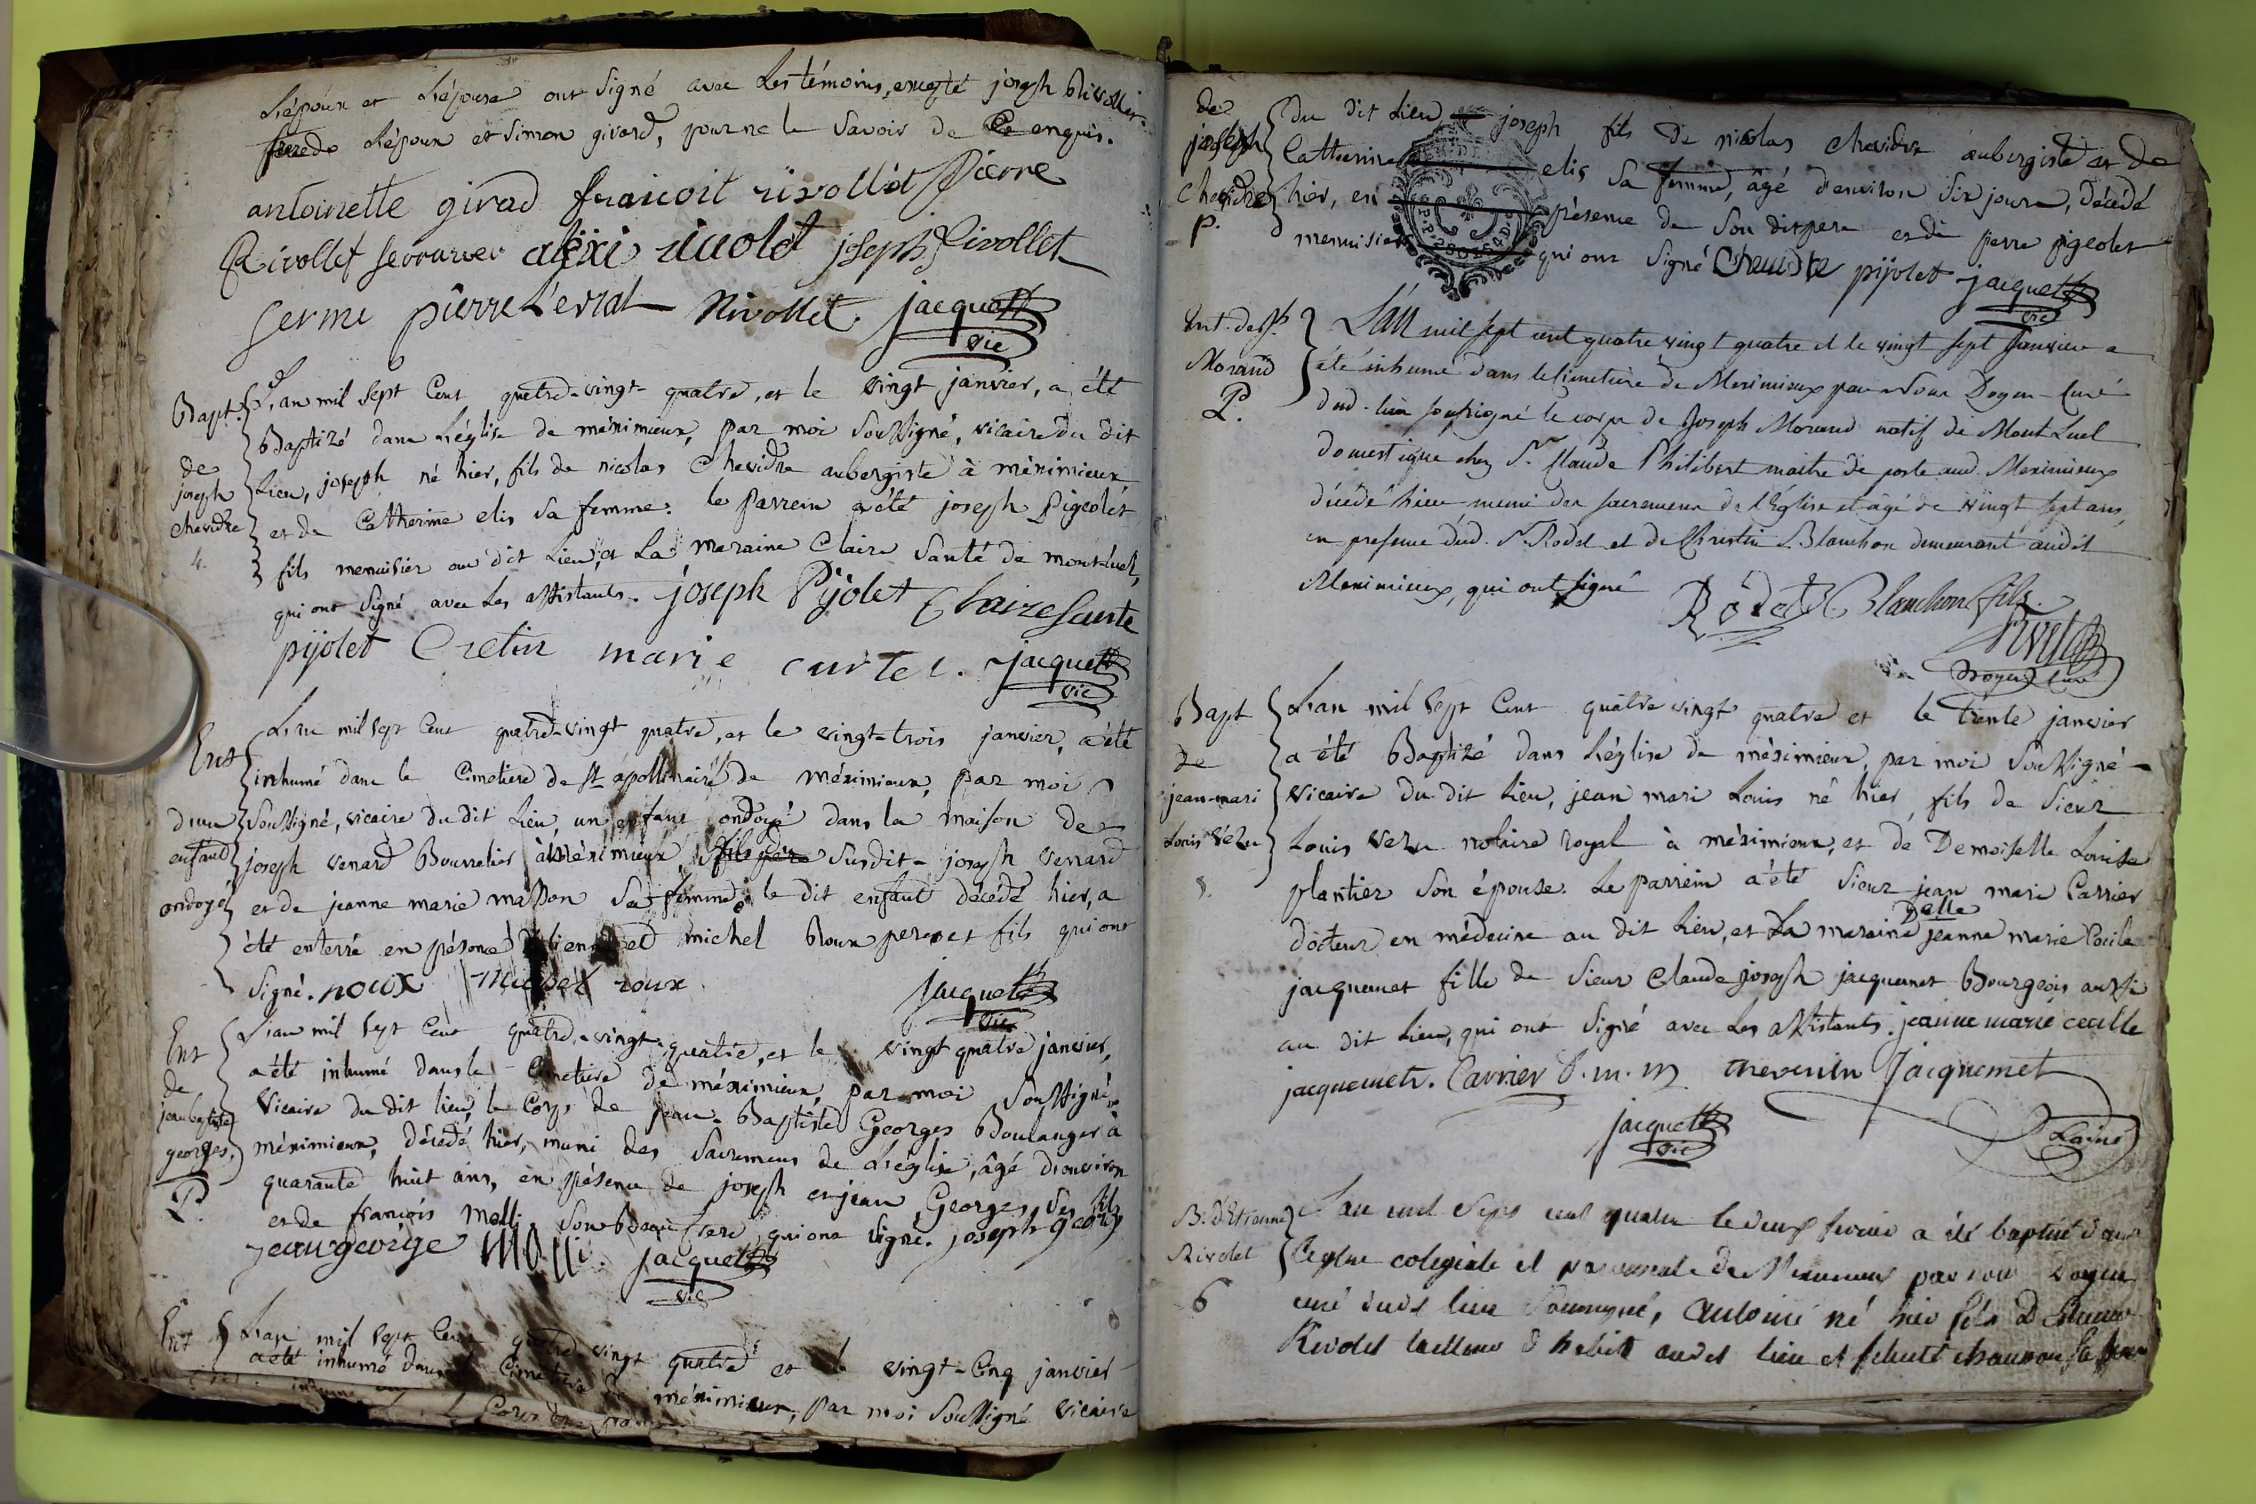 L'époux et L'épouse ont signé avec Les témoins, excepté joseph Rivollier
frere de L'époux et simon girard, pour ne le savoir de ce enquis.
antoinette girad francoit rivollet pierre
Rivollet serrurier alexi rivolet joseph Rivollet
germe pierre Levrat Rivollet. jacquet
vic
Bapt. L'an mil sept Cent quatre-vingt-quatre, et le vingt janvier, a été
Baptizé dans L'église de méximieux, par moi soussigné, vicaire du dit
de
joseph Lieu, joseph né hier, fils de nicolas Chevidre aubergiste à méximieux
chevidre et de Catherine elis sa femme: le parrein a été joseph pigeolet
4. fils menuisier au dit Lieu, et La maraine Claire Santé de montluel,
qui ont signé avec Les assistants. joseph Pijolet Claire Sante
pijolet Cretin marie curtel. jacquet
vic
Ent L'an mil sept Cent quatre-vingt quatre, et le vingt-trois janvier, a été
inhumé dans le Cimetiere de St apollinaire de méximieux, par moi
d'un soussigné, vicaire du dit Lieu, un enfant ondoyé dans la maison de
enfant joseph venard Bourrelier à Méximieux, susdit joseph venard
ondoyé et de jeanne marie masson sa femme; le dit enfant décédé hier, a
été enterré en présence michel Roux pere et fils qui ont
signé. roux michel roux jacquet
vic
Ent L'an mil sept Cent quatre-vingt-quatre, et le vingt quatre janvier,
a été inhumé dans le Cimetiere de méximieux, par moi soussigné
de
jeanbaptiste vicaire du dit lieu, le Corps de jean-Baptiste Georges Boulanger à
georges. méximieux, décédé hier, muni des sacremens de L'église, âgé d'environ
P. quarante huit ans, en présence de joseph et jean Georges ses fils
et de françois Molli son beau frere, qui ont signé. joseph george
jean george Molli. jacquet
vic
Ent L'an mil sept Cent quatre-vingt quatre et le vingt-Cinq janvier
a été inhumé dans le Cimetiere de méximieux, par moi soussigné vicaire
de du dit Lieu joseph fils de nicolas chevidre aubergiste et de
joseph Catherine elis sa femme, âgé d'environ six jours, décédé
Chevidre hier, en présence de son dit pere et de pierre pigeolet
P. menuisier qui ont signé Chevidre pijolet jacquet
vic
Ent. de Jh L'an mil sept cent quatre vingt quatre et le vingt sept Janvier a
Morand été inhumé dans le Cimetiere de Meximieux par nous Doyen-Curé
P. dud. lieu soussigné le corps de Joseph Morand natif de Mont Luel
domestique chez Sr. Claude Philibert maitre de poste aud. Meximieux
décédé hier muni des sacremens de l'Eglise et âgé de vingt sept ans,
en presence dud. Sr. Rodet et de Christin Blanchon demeurant audit
Meximieux, qui ont signé Rôdet Blanchon fils.
Doyen Curé
Bapt L'an mil sept Cent quatre vingt quatre et le trente janvier
de a été Baptizé dans L'église de méximieux, par moi soussigné
jean-mari vicaire du dit Lieu, jean mari Louis né hier, fils de sieur
Louis vézu Louis vezu notaire royal à méximieux, et de Demoiselle Louise
plantier son épouse. Le parrein a été sieur jean mari Carrier
Delle
docteur en médecine au dit Lieu, et La maraine jeanne marie Cécile
jacquemet fille de sieur Claude joseph jacquemet Bourgeois aussi
au dit Lieu, qui ont signé avec Les assistants. jeanne marie cecille
jacquemet. Carrier D. m. m thevenin Jacquemet
jacquet L'ainé
vic
B. d'Etienne L'an mil sept cent quatre le deux fevrier a été baptisé dans
Rivolet l'eglise colegiale et parroissiale de Meximieux par nous doyen
6 curé dudt lieu soussigné, antoine né hier fils d'Etienne
Rivolet tailleur d'habits audt lieu et